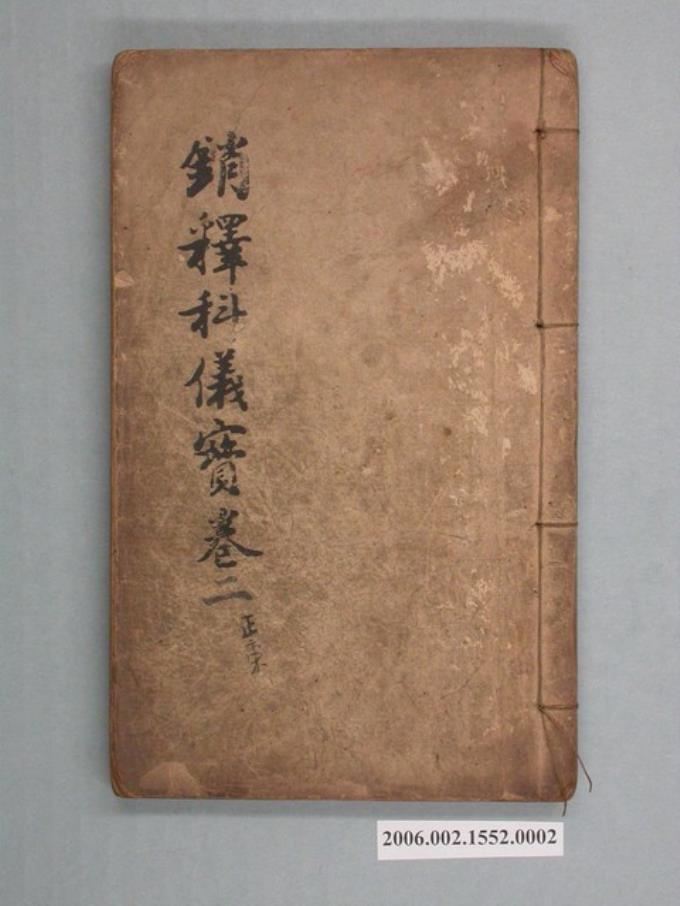 銷釋科儀寶卷二
2006.002.1552.0002